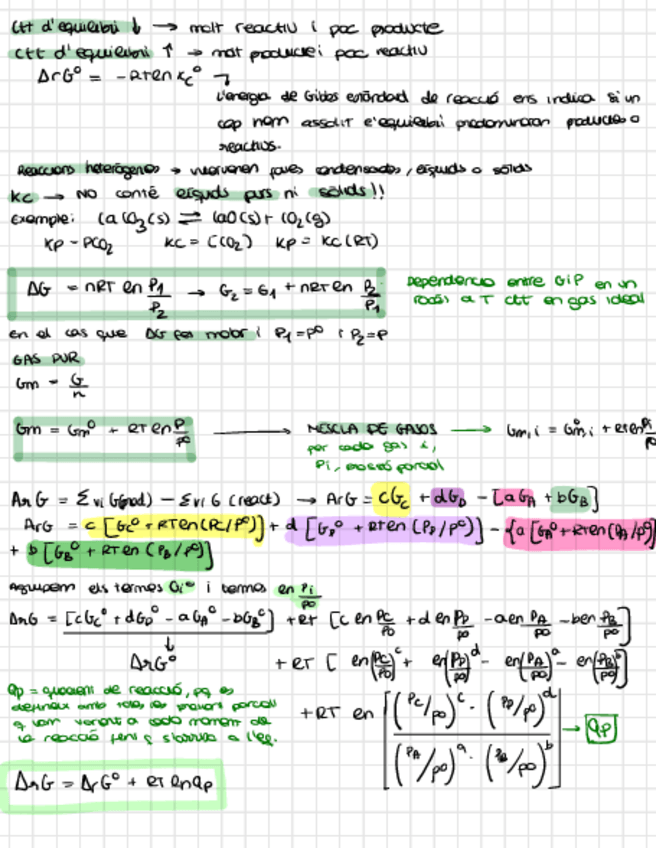 Ctt d'equilibri ↓ → molt reactiu i poc producte
Ctt d'equilibri ↑ → molt producte i poc reactiu
ΔrG° = -RT ln Kc°
L'energia de Gibbs estàndard de reacció ens indica si un
cop hem assolit l'equilibri predominaran productes o
reactius.
Reaccions heterògenes → intervenen fases condensades, líquids o sòlids
Kc → NO conté líquids purs ni sòlids!!
Exemple: CaCO3(s) ⇌ CaO(s) + CO2(g)
Kp = PCO2 Kc = C(CO2) Kp = Kc(RT)
ΔG = nRT ln P1/P2 → G2 = G1 + nRT ln P2/P1
Dependència entre G i P en un
procés a T ctt en gas ideal
En el cas que ΔG per mol i P1=P° i P2=P
GAS PUR
Gm = G/n
Gm = Gm° + RT ln P/P° → MESCLA DE GASOS → Gm,i = G°m,i + RT ln Pi/P°
per cada gas i,
Pi, pressió parcial
ΔrG = Σ νi G(prod) - Σ νi G (react) → ΔrG = cGc + dGD - [aGA + bGB]
ΔrG = c [Gc° + RT ln(Pc/P°)] + d [GD° + RT ln (PD/P°)] - {a [GA° + RT ln (PA/P°)]
+ b [GB° + RT ln (PB/P°)]
Agrupem els termes Gi° i termes ln Pi/P°
ΔrG = [cGc° + dGD° - aGA° - bGB°] + RT [c ln Pc/P° + d ln PD/P° - a ln PA/P° - b ln PB/P°]
↓
ΔrG° + RT [ ln(Pc/P°)^c + ln(PD/P°)^d - ln(PA/P°)^a - ln(PB/P°)^b ]
Qp = quocient de reacció, pq es
defineix amb totes les pressions parcials
q van variant a cada moment de
la reacció fins q s'arriba a l'eq.
+ RT ln [ (Pc/P°)^c · (PD/P°)^d / (PA/P°)^a · (PB/P°)^b ] → Qp
ΔrG = ΔrG° + RT ln Qp